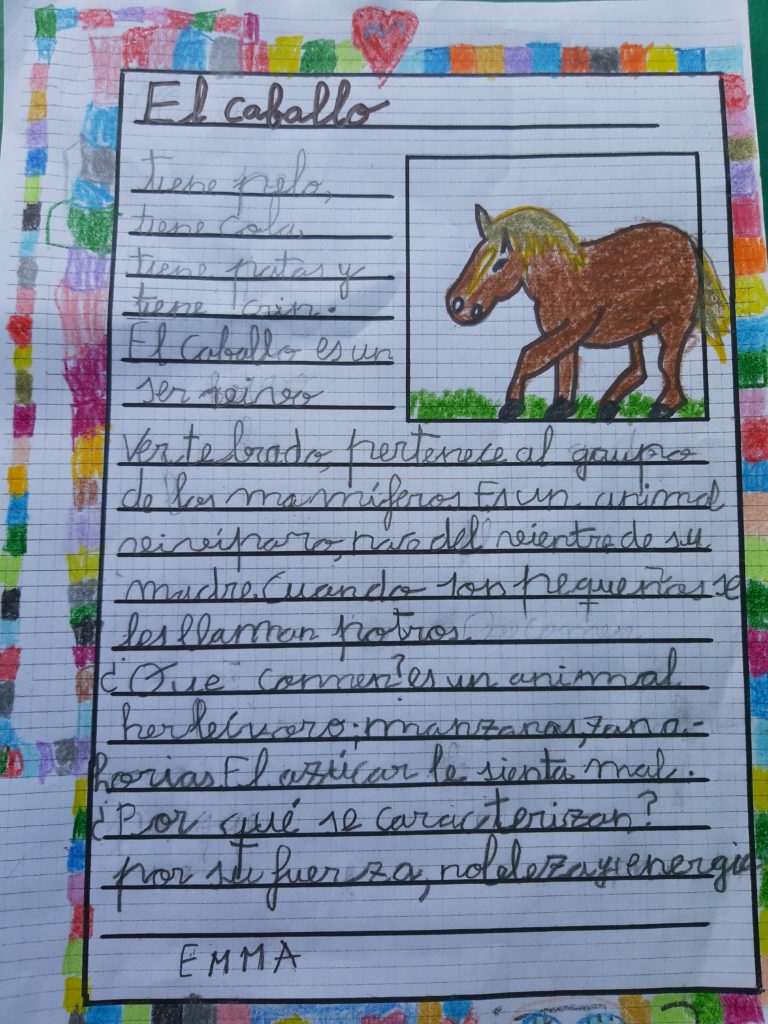 El caballo
tiene pelo,
tiene cola,
tiene patas y
tiene crin.
El caballo es un
ser vivo
vertebrado, pertenece al grupo
de los mamíferos. Es un animal
vivíparo, nace del vientre de su
madre. Cuando son pequeños se
les llaman potros.
¿Qué comen? es un animal
herbívoro; manzanas, zana-
horias. El azúcar le sienta mal.
¿Por qué se caracterizan?
por su fuerza, nobleza y energía
EMMA